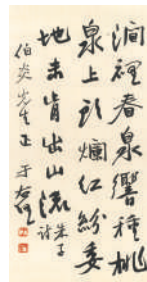 澗裡春泉響種桃
泉上頭爛紅紛委
地未肯出山流朱子詩
伯炎先生正于右任